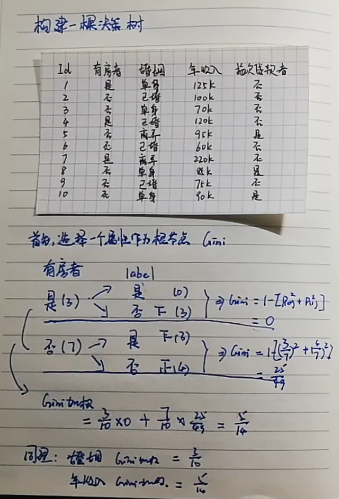 构建一棵决策树
Id 有房者 婚姻 年收入 拖欠贷款者
1 是 单身 125k 否
2 否 已婚 100k 否
3 否 单身 70k 否
4 是 已婚 120k 否
5 否 离异 95k 是
6 否 已婚 60k 否
7 是 离异 220k 否
8 否 单身 85k 是
9 否 已婚 75k 否
10 否 单身 90k 是
首先,选择一个属性作为根节点 Gini
有房者 label
是(3) 是 (0)
否 下(3) ⇒ Gini = 1-[P(0)²+P(1)²]
= 0
否(7) 是 下(3) ⇒ Gini = 1-[(3/7)²+(4/7)²]
否 正(4) = 25/49
Gini加权
= 3/10 × 0 + 7/10 × 25/49 = 5/14
同理: 婚姻 Gini加权 = 3/10
年收入 Gini加权